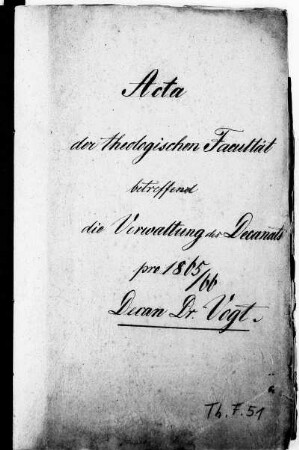 Acta
der theologischen Facultät
betreffend
die Verwaltung des Decanats
pro 1865/66
Decan Dr. Vogt.
Th. F. 51